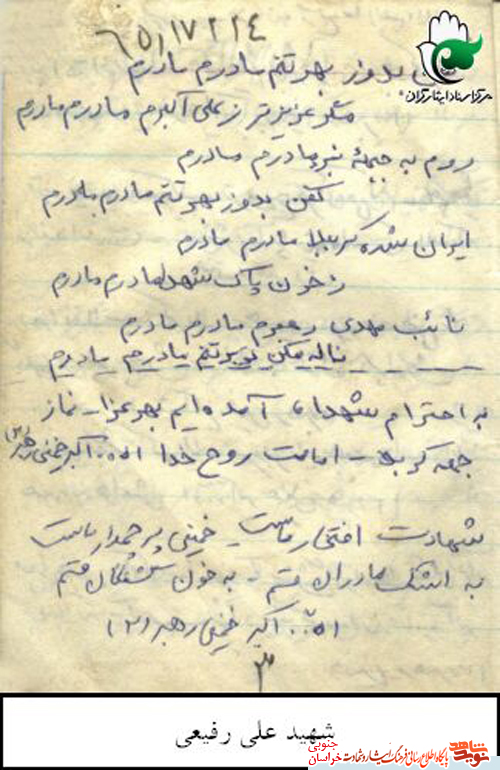 ۶۵/۱۷۲۲۴
مرکز اسناد ایثارگران
بدوز بهر تنم مادرم مادرم
مگو عزیزتر ز علی اکبرم مادرم مادرم
روم به جبههٔ نبرد مادرم مادرم
کفن بدوز بهر تنم مادرم مادرم
ایران شده کربلا مادرم مادرم
ز خون پاک شهدا مادرم مادرم
نائب مهدی رهبرم مادرم مادرم
ناله مکن مادرم مادرم
به احترام شهداء آمده‌ایم بهر عزا - نماز
جمعه کربلا - امامت روح خدا الله اکبر خمینی رهبر (۲)
شهادت افتخار ماست - خمینی پرچمدار ماست
به اشک مادران قسم - به خون کشتگان قسم
الله اکبر خمینی رهبر (۲)
۳
شهید علی رفیعی
پایگاه اطلاع رسانی فرهنگ ایثار و شهادت خراسان جنوبی
نوید شاهد